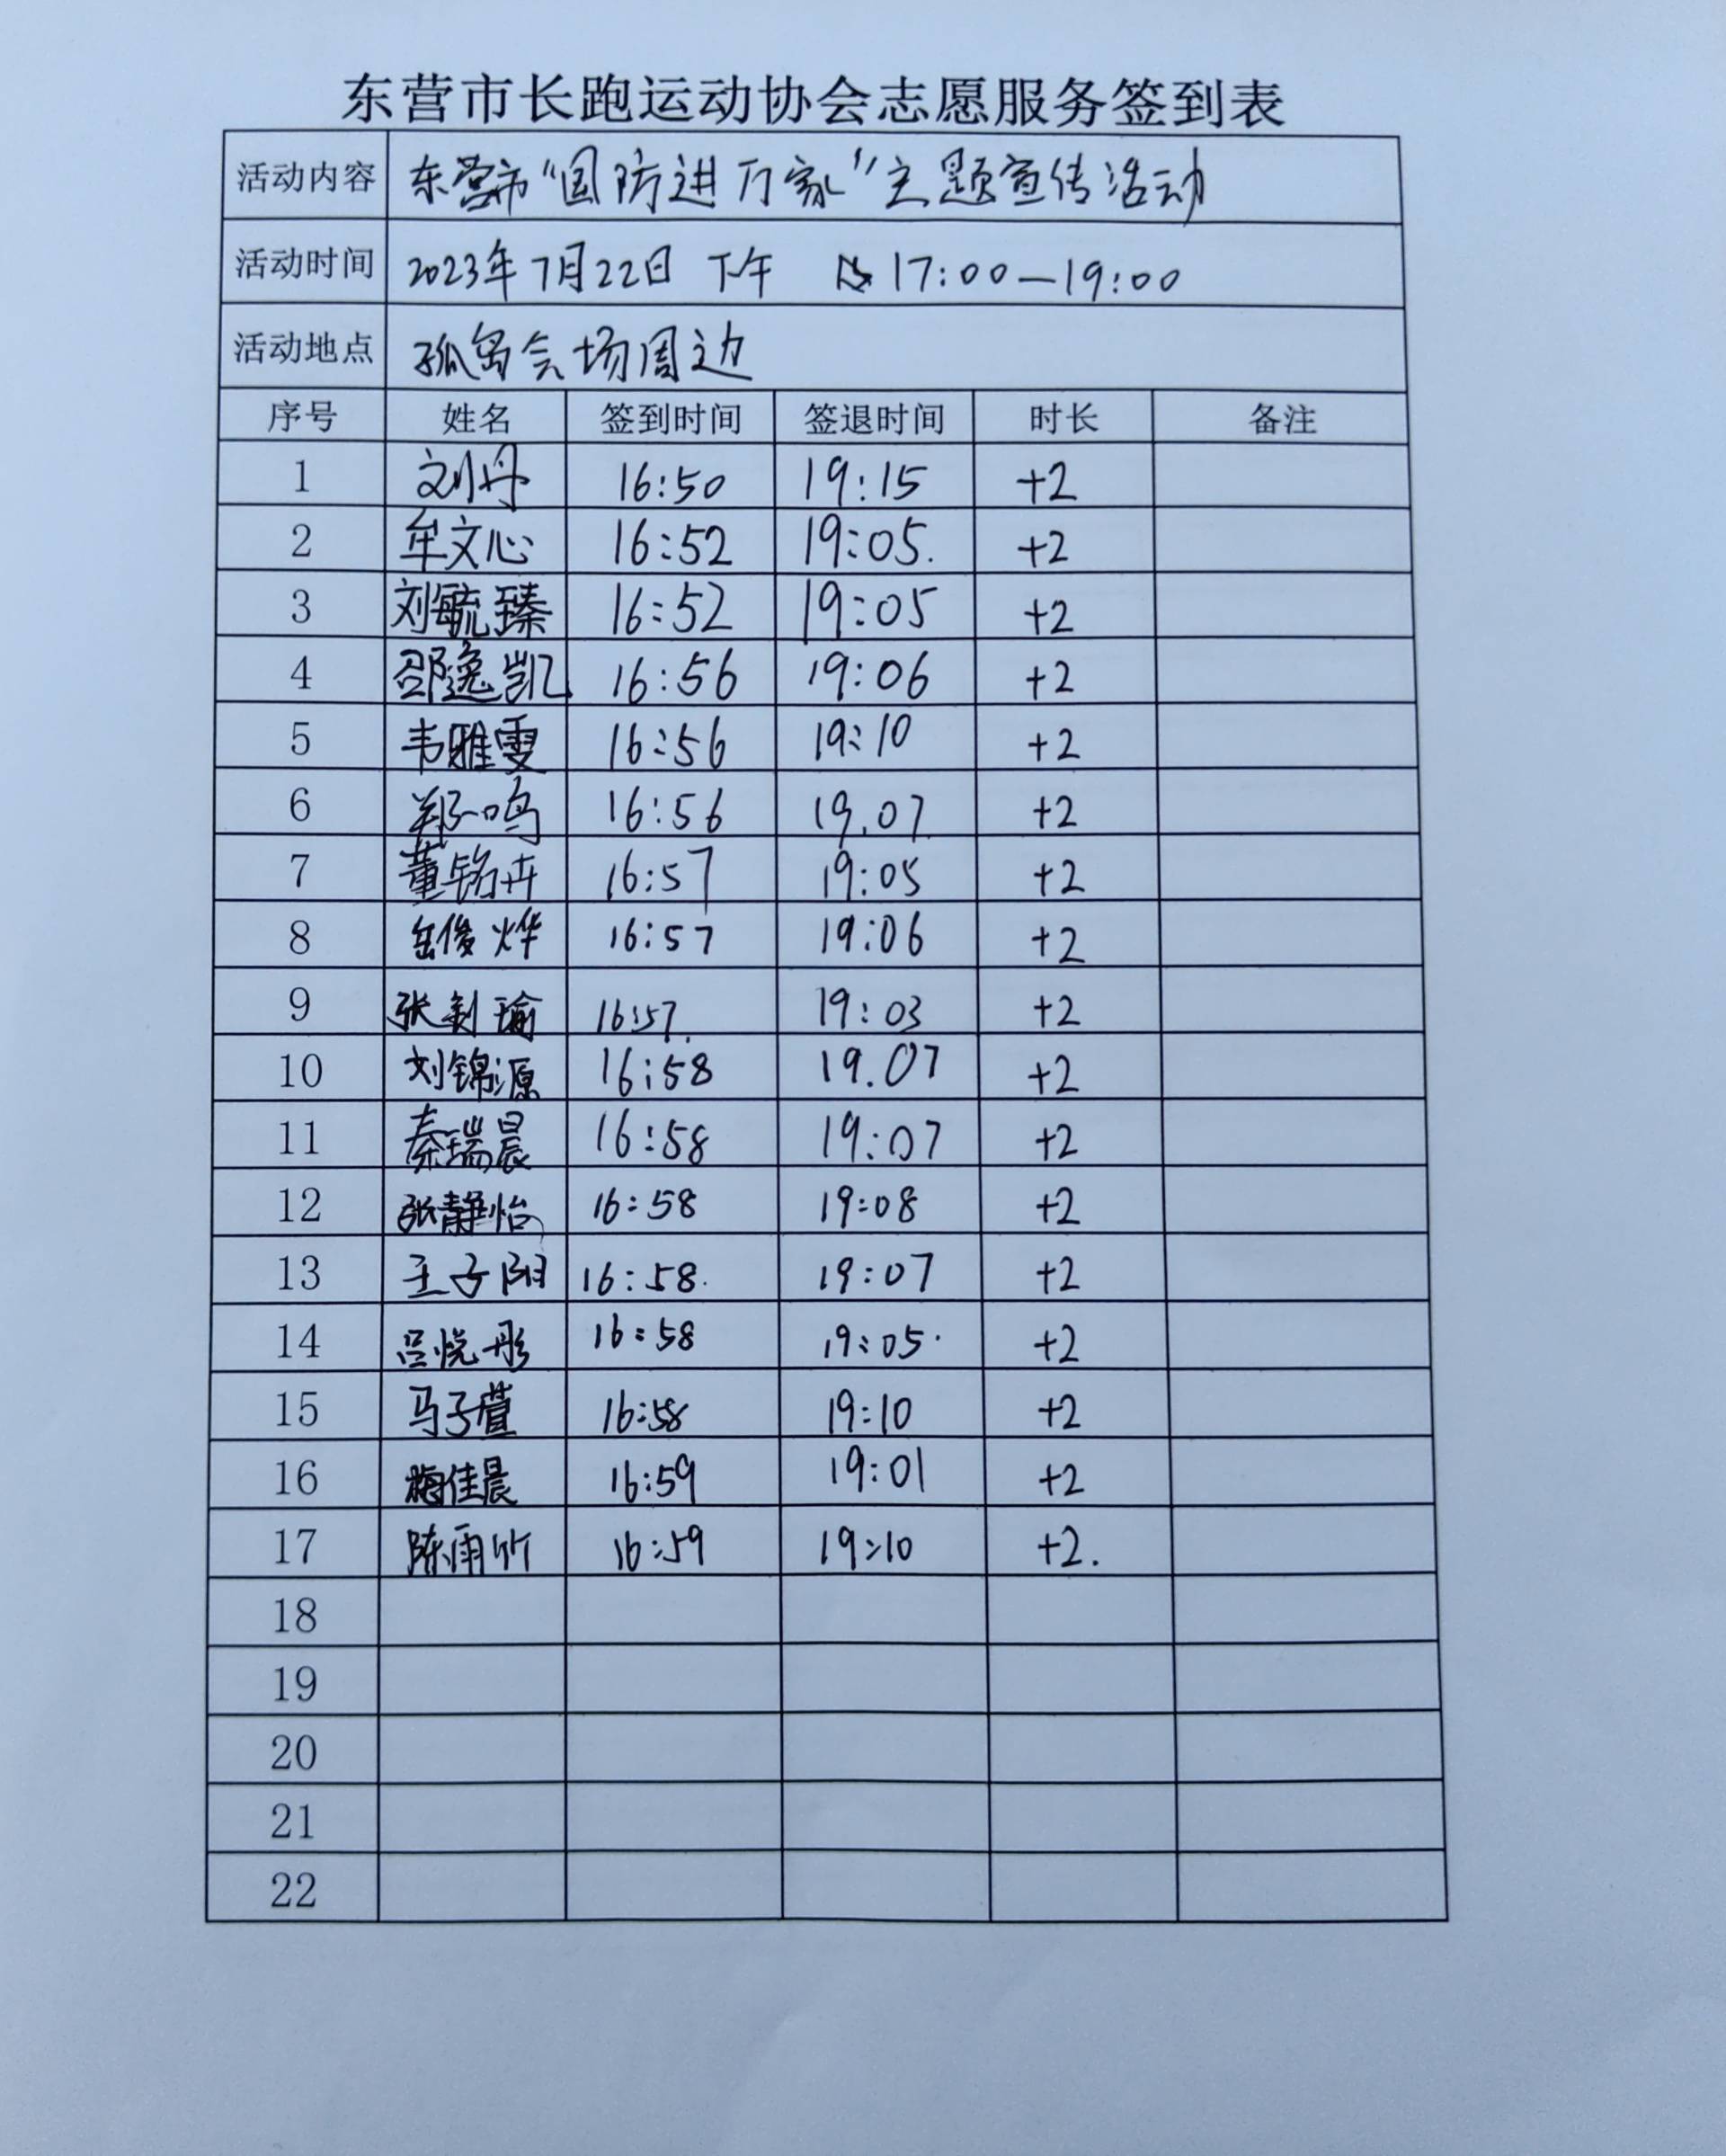 东营市长跑运动协会志愿服务签到表
活动内容 东营市“国防进万家”主题宣传活动
活动时间 2023年7月22日 下午 17:00—19:00
活动地点 孤岛会场周边
序号 姓名 签到时间 签退时间 时长 备注
1 刘丹 16:50 19:15 +2
2 牟文心 16:52 19:05.
3 刘毓臻 16:52 19:05 +2
4 邵逸凯 16:56 19:06 +2
5 韦雅雯 16:56 19:10 +2
6 郑一鸣 16:56 19.07 +2
7 董铭卉 16:57 19:05 +2
8 岳俊烨 16:57 19:06 +2
9 张钊瑜 16:57. 19:03 +2
10 刘锦源 16:58 19.07 +2
11 秦瑞晨 16:58 19:07 +2
12 张静怡 16:58 19:08 +2
13 王子阳 16:58. 19:07 +2
14 吕悦彤 16:58 19:05. +2
15 马子萱 16:58 19:10 +2
16 梅佳晨 16:59 19:01 +2
17 陈雨竹 16:59 19:10 +2.
18
19
20
21
22